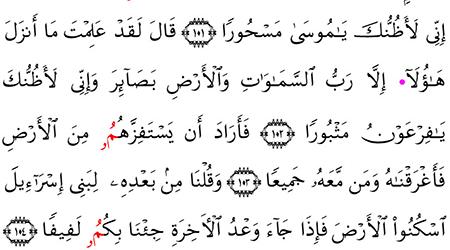 إِنِّي لَأَظُنُّكَ يَٰمُوسَىٰ مَسْحُورًا ١٠١ قَالَ لَقَدْ عَلِمْتَ مَا أَنزَلَ
هَٰؤُلَآ• إِلَّا رَبُّ السَّمَٰوَٰتِ وَالْأَرْضِ بَصَآئِرَ وَإِنِّي لَأَظُنُّكَ
يَٰفِرْعَوْنُ مَثْبُورًا ١٠٢ فَأَرَادَ أَن يَسْتَفِزَّهُمُۥ مِنَ الْأَرْضِ
فَأَغْرَقْنَٰهُ وَمَن مَّعَهُۥ جَمِيعًا ١٠٣ وَقُلْنَا مِنۢ بَعْدِهِۦ لِبَنِي إِسْرَآءِيلَ
اسْكُنُوا۟ الْأَرْضَ فَإِذَا جَآءَ وَعْدُ الْأَخِرَةِ جِئْنَا بِكُمُۥ لَفِيفًا ١٠٤